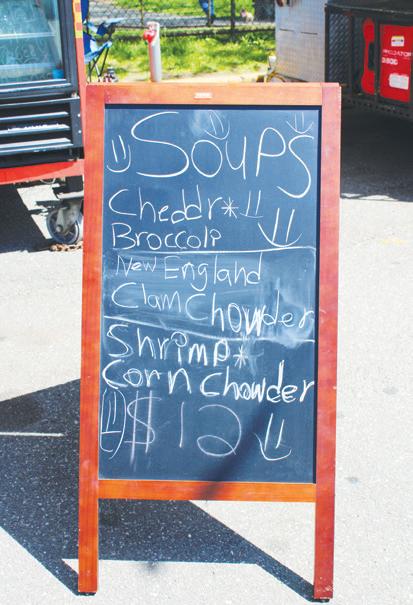 Soups
Cheddr*
Broccoli
New England
Clam Chowder
Shrimp*
Corn Chowder
$12